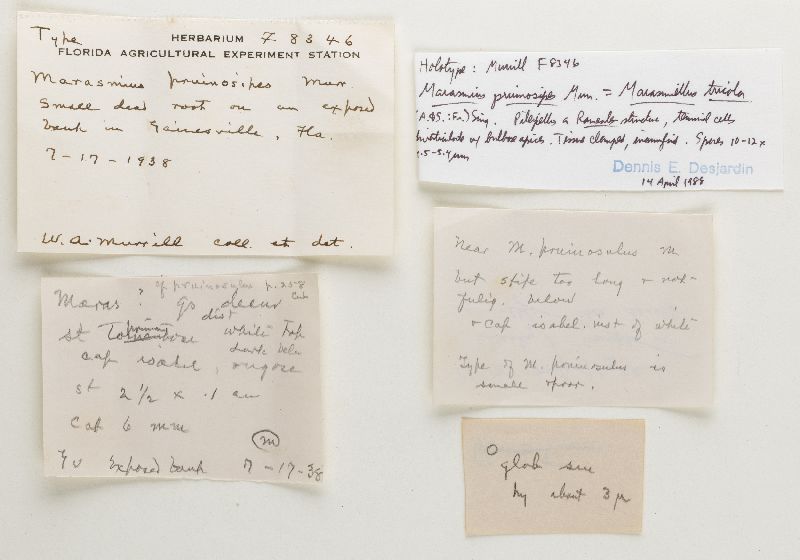 Type HERBARIUM F 8346
FLORIDA AGRICULTURAL EXPERIMENT STATION
Marasmius pruinosipes Murr.
Small dead root on an exposed
bank in Gainesville, Fla.
7-17-1938
W. A. Murrill coll. et det.
Holotype: Murrill F8346
Marasmius pruinosipes Murr. = Marasmiellus tricolor
(A.&S.:Fr.) Sing. Pileipellis a Rameales structure, terminal cells
diverticulate w/ bulbose apices. Tissue clamped, inamyloid. Spores 10-12 x
4.5-5.4 µm
Dennis E. Desjardin
14 April 1988
cf pruinosulus p. 258
Cuba
Maras? go decur
dist
st pruinose white top
dark below
cap isabel, rugose
st 2 1/2 x .1 cm
cap 6 mm
m
Gv Exposed bank 7-17-38
Near M. pruinosulus M
but stipe too long & not
fulig. below
& cap isabel. inst of white
Type of M. pruinosulus is
small & poor.
glob sm
hy about 3 µ